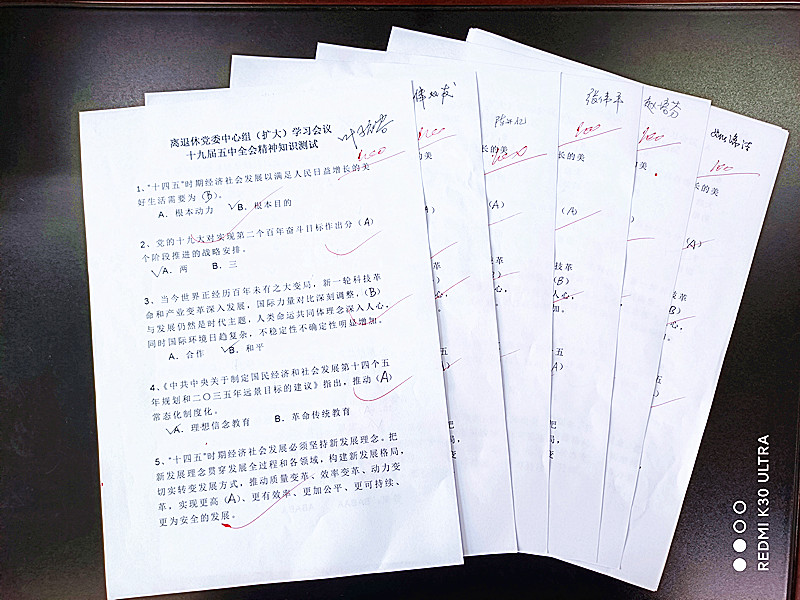 离退休党委中心组（扩大）学习会议
十九届五中全会精神知识测试
100
1、“十四五”时期经济社会发展以满足人民日益增长的美
好生活需要为（B）。
A、根本动力 ✓B、根本目的
2、党的十九大对实现第二个百年奋斗目标作出分（A）
个阶段推进的战略安排。
✓A、两 B、三
3、当今世界正经历百年未有之大变局，新一轮科技革
命和产业变革深入发展，国际力量对比深刻调整，（B）
与发展仍然是时代主题，人类命运共同体理念深入人心，
同时国际环境日趋复杂，不稳定性不确定性明显增加。
A、合作 ✓B、和平
4、《中共中央关于制定国民经济和社会发展第十四个五
年规划和二〇三五年远景目标的建议》指出，推动（A）
常态化制度化。
✓A、理想信念教育 B、革命传统教育
5、“十四五”时期经济社会发展必须坚持新发展理念。把
新发展理念贯穿发展全过程和各领域，构建新发展格局，
切实转变发展方式，推动质量变革、效率变革、动力变
革，实现更高（A）、更有效率、更加公平、更可持续、
更为安全的发展。
100
100
长的美
（A）
技革
（B）
心，
五
把
局，
变
张伟平
100
100
100
长的美
（A）
技革
（B）
五
REDMI K30 ULTRA